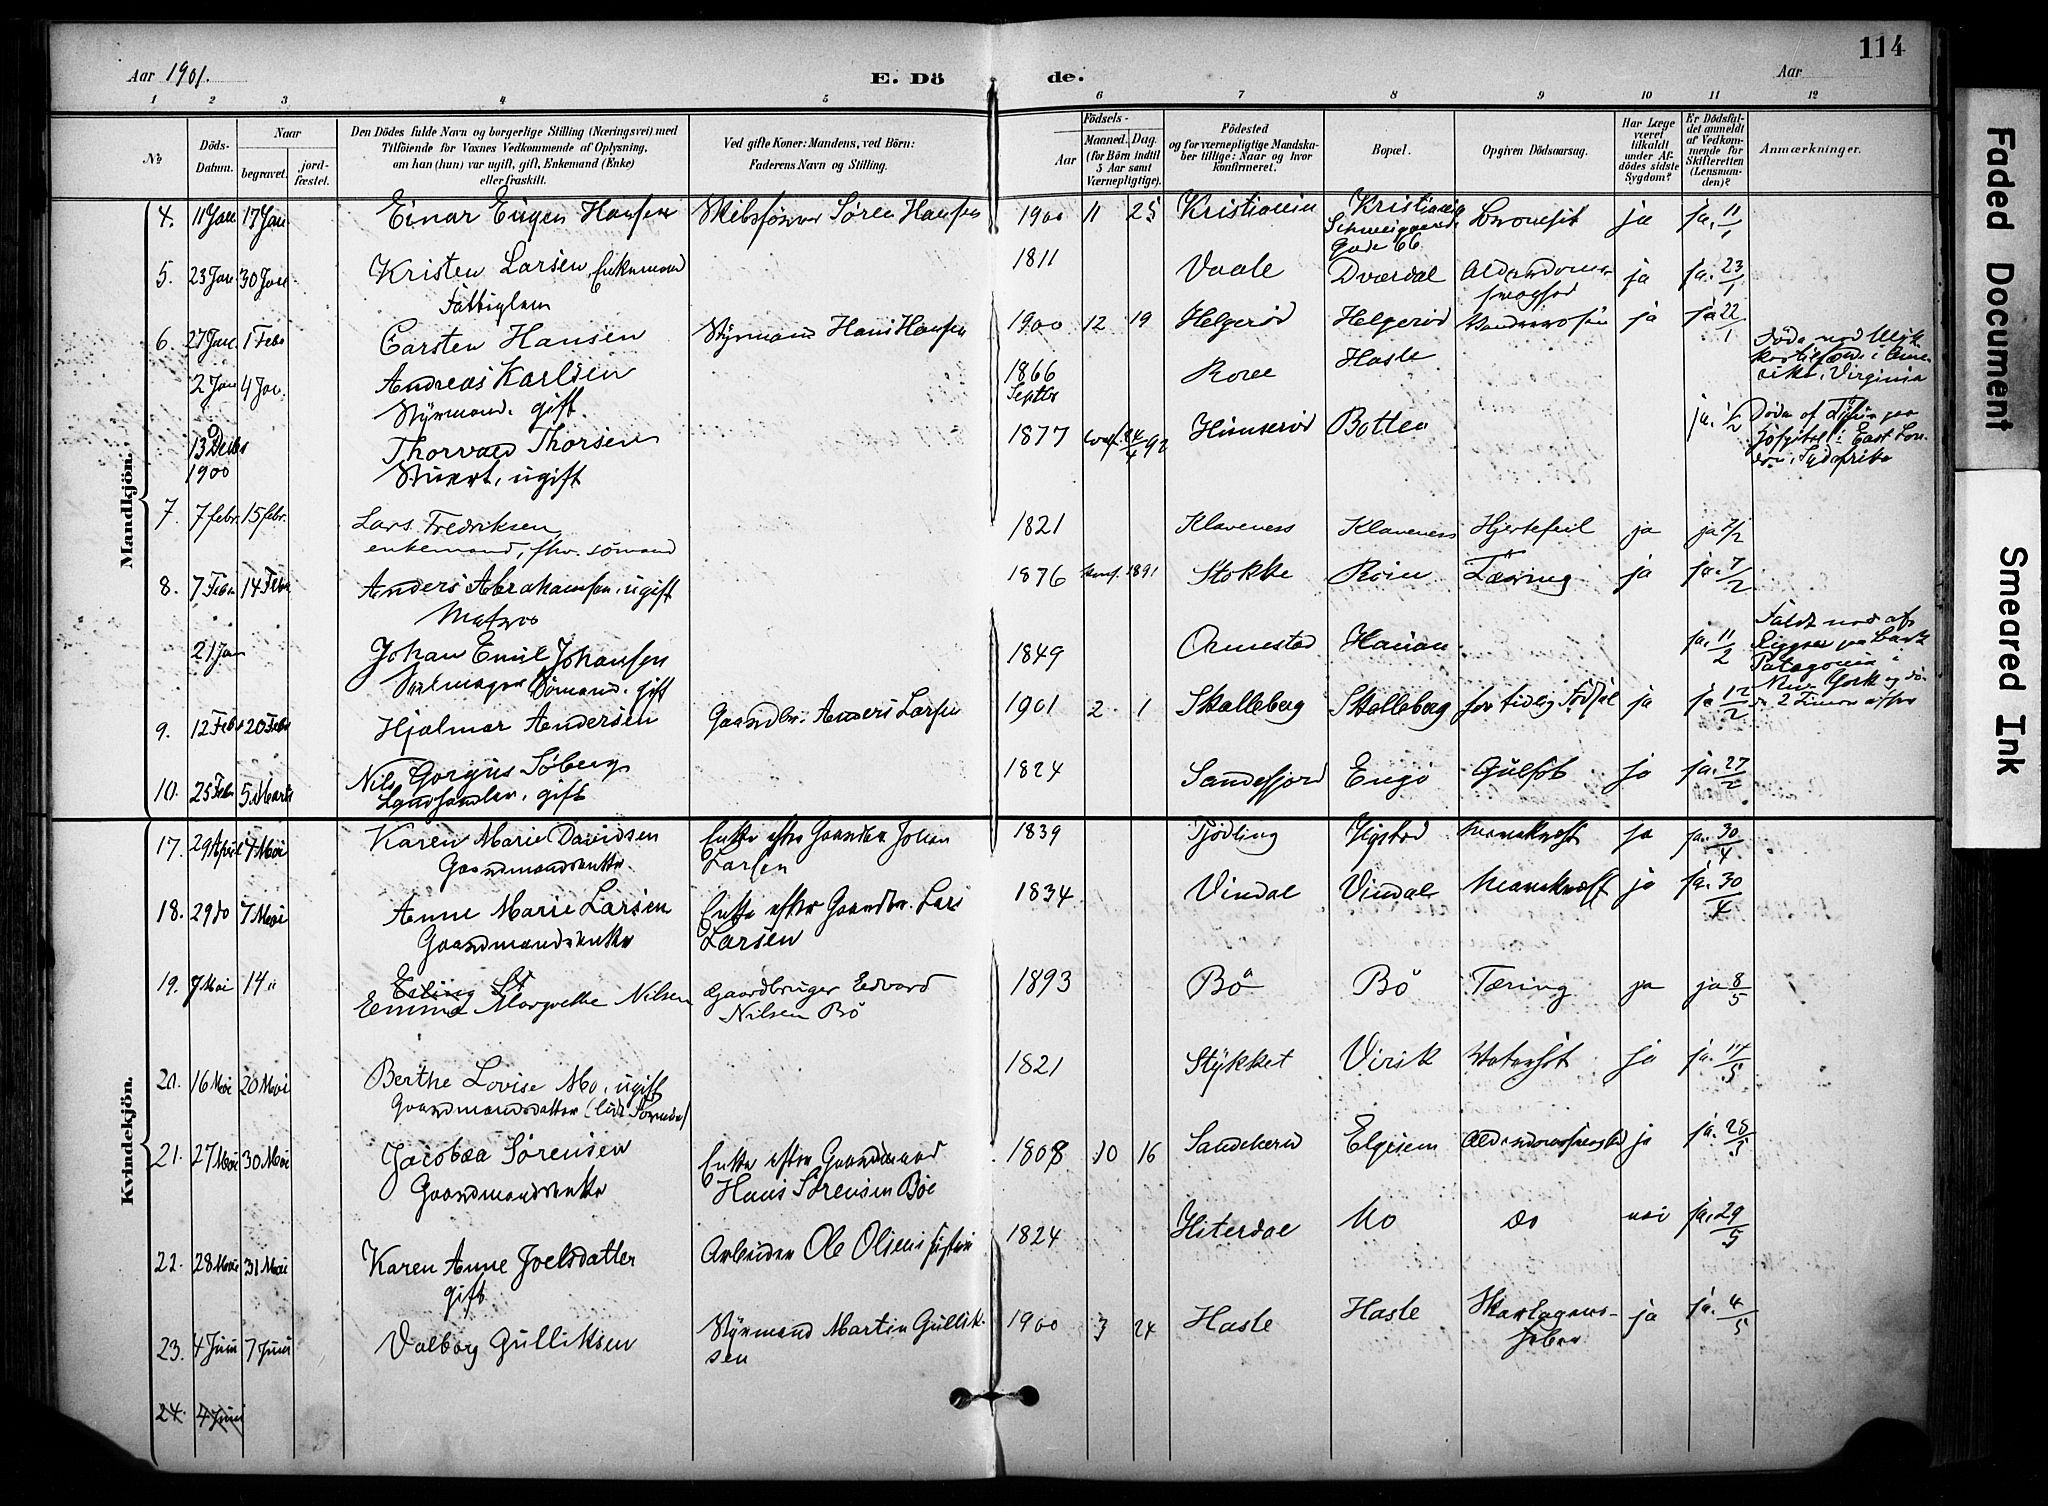 114
Aar 1901.
E. Dö de.
Aar
1 2 3 4 5 6 7 8 9 10 11 12
No
Döds-
Datum.
Naar
begravet.
jord-
fæstet.
Den Dödes fulde Navn og borgerlige Stilling (Næringsvei) med
Tilföiende for Voxnes Vedkommende af Oplysning,
om han (hun) var ugift, gift, Enkemand (Enke)
eller fraskilt.
Ved gifte Koner: Mandens, ved Börn:
Faderens Navn og Stilling.
Födsels-
Aar
Maaned. Dag.
(for Börn indtil
5 Aar samt
Værnepligtige).
Födested
og for værnepligtige Mandska-
ber tillige: Naar og hvor
konfirmeret.
Bopæl.
Opgiven Dödsaarsag.
Har Læge
været
tilkaldt
under Af-
dödes sidste
Sygdom?
Er Dödsfal-
det anmeldt
af Vedkom-
mende for
Skifteretten
(Lensman-
den)?
Anmærkninger.
Mandkjön.
4. 11 Jan 17 Jan Einar Eugen Hansen Skibsfører Søren Hansen 1900 11 25 Kristiania Kristiania
Schweigaards
Gade 66
ja ja. 11/1
5. 23 Jan 30 Jan Kristen Larsen, Enkemand
Fattiglem
1811 Vaale Dværdal ja ja. 23/1
6. 27 Jan 1 Febr Carsten Hansen Styrmand Hans Hansen 1900 12 19 Helgerød Helgerød ja ja 22/1
2 Jan 4 Jan. Andreas Karlsen
Styrmand. gift.
1866
Septbr
Hasle
Virginia
13 Decbr
1900
Thorvald Thorsen
Stuert, ugift
1877 konf. 24/4 92 Himserød Botten ja. 1/2
Døde af
Hospital i East Lon-
don, Sydafrika
7. 7 febr. 15 febr. Lars Fredriksen,
enkemand, fhv. sömand
1821 Klaveness Klaveness Hjertefeil ja ja 7/2
8. 7 Febr 14 Febr Anders Abrahamsen, ugift
Matros
1876 konf. 1891 Stokke Røin Tæring ja ja. 7/2
21 Jan Johan Emil Johansen
Seilmager Sømand. gift
1849 Ormestad Havan ja. 11/2
Faldt ned af
Riggen paa Bark
Patagonia i
New York og dö-
de 2 Timer efter
9. 12 Febr 20 Febr Hjalmar Andersen Gaardbr. Anders Larsen 1901 2 1 Skalleberg Skalleberg for tidlig Fødsel ja ja 12/2
10. 25 Febr 5 Marts Nils Gorgus Søberg
Landhandler, gift
1824 Sandefjord Engø Gulsot ja ja. 27/2
Kvindekjön.
17. 29 April 7 Mai Karen Marie Davidsen
Gaardmandsenke
Enke efter Gaardbr Johan
Larsen
1839 Tjødling ja ja. 30/4
18. 29 do 7 Mai Anne Marie Larsen
Gaardmandsenke
Enke efter Gaardbr. Lars
Larsen
1834 Vindal Vindal ja ja. 30/4
19. 7 Mai 14 "
Emma Margrethe Nilsen
Gaardbruger Edvard
Nilsen Bö
1893 Bö Bö Tæring ja ja 8/5
20. 16 Mai 20 Mai Berthe Lovise Mo, ugift
Gaardmandsdatter
1821 Stykket Virik Vatersot ja ja. 17/5
21. 27 Mai 30 Mai Jacobæa Sørensen
Gaardmandsenke
Enke efter Gaardmand
Hans Sørensen Bøe
1808 10 16 Sandeherred Elgesem ja ja. 28/5
22. 28 Mai 31 Mai Karen Anne Joelsdatter
gift
Arbeider Ole Olsens hustru
1824 Hiterdal Mo do nei ja. 29/5
23. 4 Juni 7 Juni Valborg Gulliksen Styrmand Martin Gullik-
sen
1900 3 24 Hasle Hasle Skarlagens-
feber
ja ja. 4/5
24. 4 Juni
Faded Document
Smeared Ink